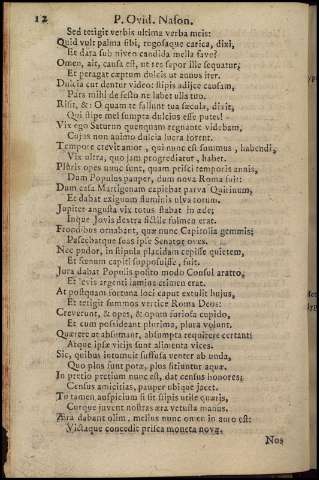 12 P. Ovid. Nason.
Sed tetigit verbis ultima verba meis:
Quid vult palma sibi, rugosaque carica, dixi,
Et data sub niveo candida mella favo?
Omen, ait, causa est, ut res sapor ille sequatur;
Et peragat cæptum dulcis ut annus iter.
Dulcia cur dentur video: stipis adijce causam,
Pars mihi de festo ne labet ulla tuo.
Risit, &: O quam te fallunt tua sæcula, dixit,
Qui stipe mel sumpta dulcius esse putes!
Vix ego Saturno quenquam regnante videbam,
Cujus non animo dulcia lucra forent.
Tempore crevit amor, qui nunc est summus, habendi,
Vix ultra, quo jam progrediatur, habet.
Pluris opes nunc sunt, quam prisci temporis annis,
Dum Populus pauper, dum nova Roma fuit:
Dum casa Martigenam capiebat parva Quirinum,
Et dabat exiguum fluminis ulva torum.
Jupiter angusta vix totus stabat in æde;
Inque Jovis dextra fictile fulmen erat.
Frondibus ornabant, quæ nunc Capitolia gemmis;
Pascebatque suas ipse Senator oves.
Nec pudor, in stipula placidam cepisse quietem,
Et fœnum capiti supposuisse, fuit.
Jura dabat Populis posito modo Consul aratro,
Et levis argenti lamina crimen erat.
At postquam fortuna loci caput extulit hujus,
Et tetigit summos vertice Roma Deos:
Creverunt, & opes, & opum furiosa cupido,
Et cum possideant plurima, plura volunt.
Quærere ut absumant, absumpta requirere certant;
Atque ipsæ vicijs sunt alimenta vices.
Sic, quibus intumuit suffusa venter ab unda,
Quo plus sunt potæ, plus sitiuntur aquæ.
In pretio pretium nunc est, dat census honores;
Census amicitias, pauper ubique jacet.
Tu tamen auspicium si sit stipis utile quæris,
Curque juvent nostras æra vetusta manus.
Æra dabant olim, melius nunc omen in auro est:
Victaque concedit prisca moneta novæ.
Nos